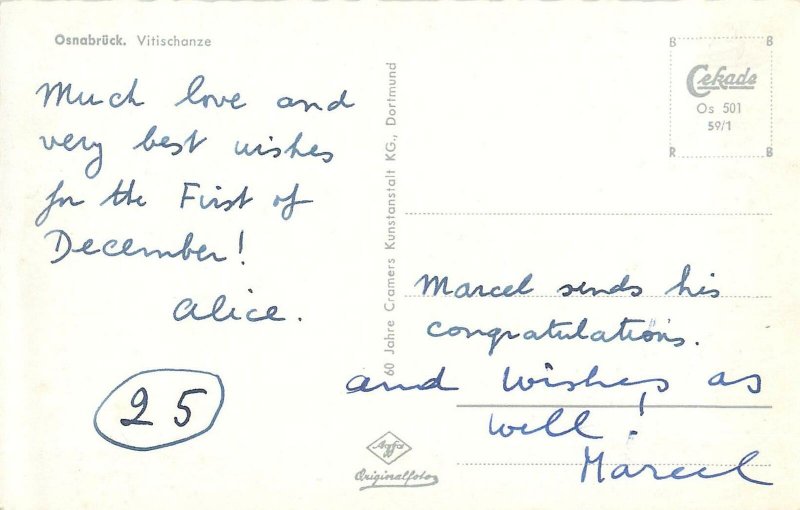 Osnabrück. Vitischanze
Much love and
very best wishes
for the First of
December!
Alice.
25
60 Jahre Cramers Kunstanstalt KG., Dortmund
B B
Cekade
Os 501
59/1
R B
Marcel sends his
congratulations.
and wishes as
well!
Marcel
Agfa
Originalfoto